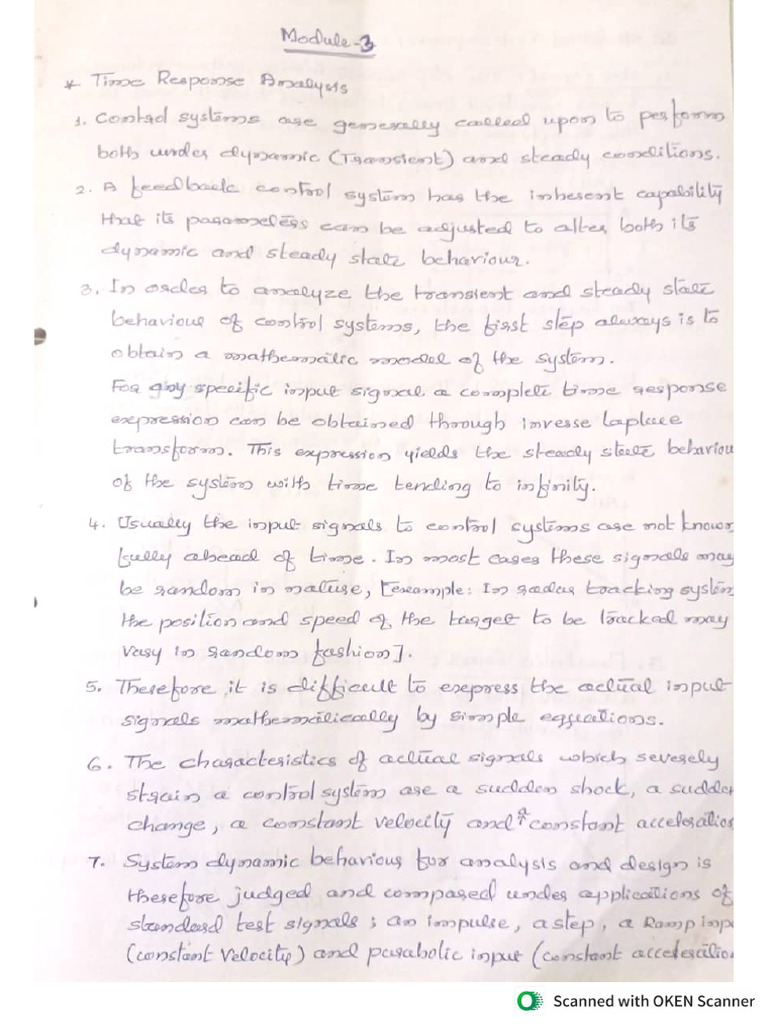 Module-3
* Time Response Analysis
1. Control systems are generally called upon to perform
both under dynamic (Transient) and steady conditions.
2. A feedback control system has the inherent capability
that its parameters can be adjusted to alter both its
dynamic and steady state behaviour.
3. In order to analyze the transient and steady state
behaviour of control systems, the first step always is to
obtain a mathematic model of the system.
For any specific input signal a complete time response
expression can be obtained through inverse laplace
transform. This expression yields the steady state behaviou
of the system with time tending to infinity.
4. Usually the input signals to control systems are not known
fully ahead of time. In most cases these signals may
be random in nature, [example: In radar tracking system
the position and speed of the target to be tracked may
vary in random fashion].
5. Therefore it is difficult to express the actual input
signals mathematically by simple equations.
6. The characteristics of actual signals which severely
strain a control system are a sudden shock, a sudden
change, a constant velocity and a constant acceleratio
7. System dynamic behaviour for analysis and design is
therefore judged and compared under applications of
standard test signals; an impulse, a step, a Ramp inp
(constant velocity) and parabolic input (constant acceleratio
Scanned with OKEN Scanner